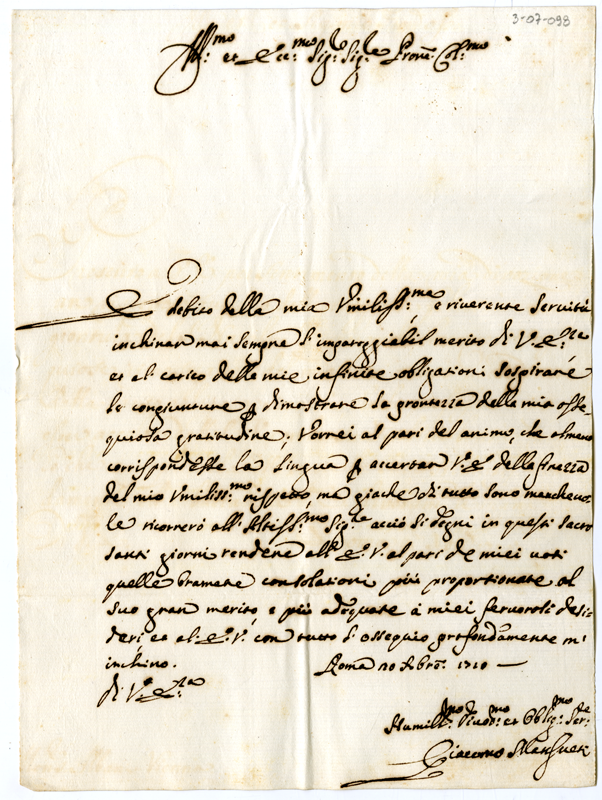 3-07-098
Ill:mo et Ecc:mo Sig:re Sig:re Prone Col:mo
È debito della mia Vmiliss:ma e riverente Servitù
inchinar mai sempre l'impareggiabil merito di V. E:za
et al carico delle mie infinite obligationi sospirare
le congiunture p dimostrare la prontezza della mia osse-
quiosa gratitudine; Vorrei al pari del animo, che almeno
corrispondesse la Lingua p accertar V. E. della finezza
del mio Vmiliss:mo rispetto, ma giache di tutto sono manchevo-
le ricorreró all'Altiss:mo Sig:re acciò si degni in questi Sacro
santi giorni rendere all'E. V. al pari de miei voti
quelle bramate consolationi più proportionate al
suo gran merito, e più adequate à miei fervorosi desi-
deri, et al' E. V. con tutto l'ossequio profondamente m'
inchino. Roma 20 Xbre 1710
di V. E:za
Humill:mo Divot:mo et Oblig:mo Ser:re
Giacomo Mansueti